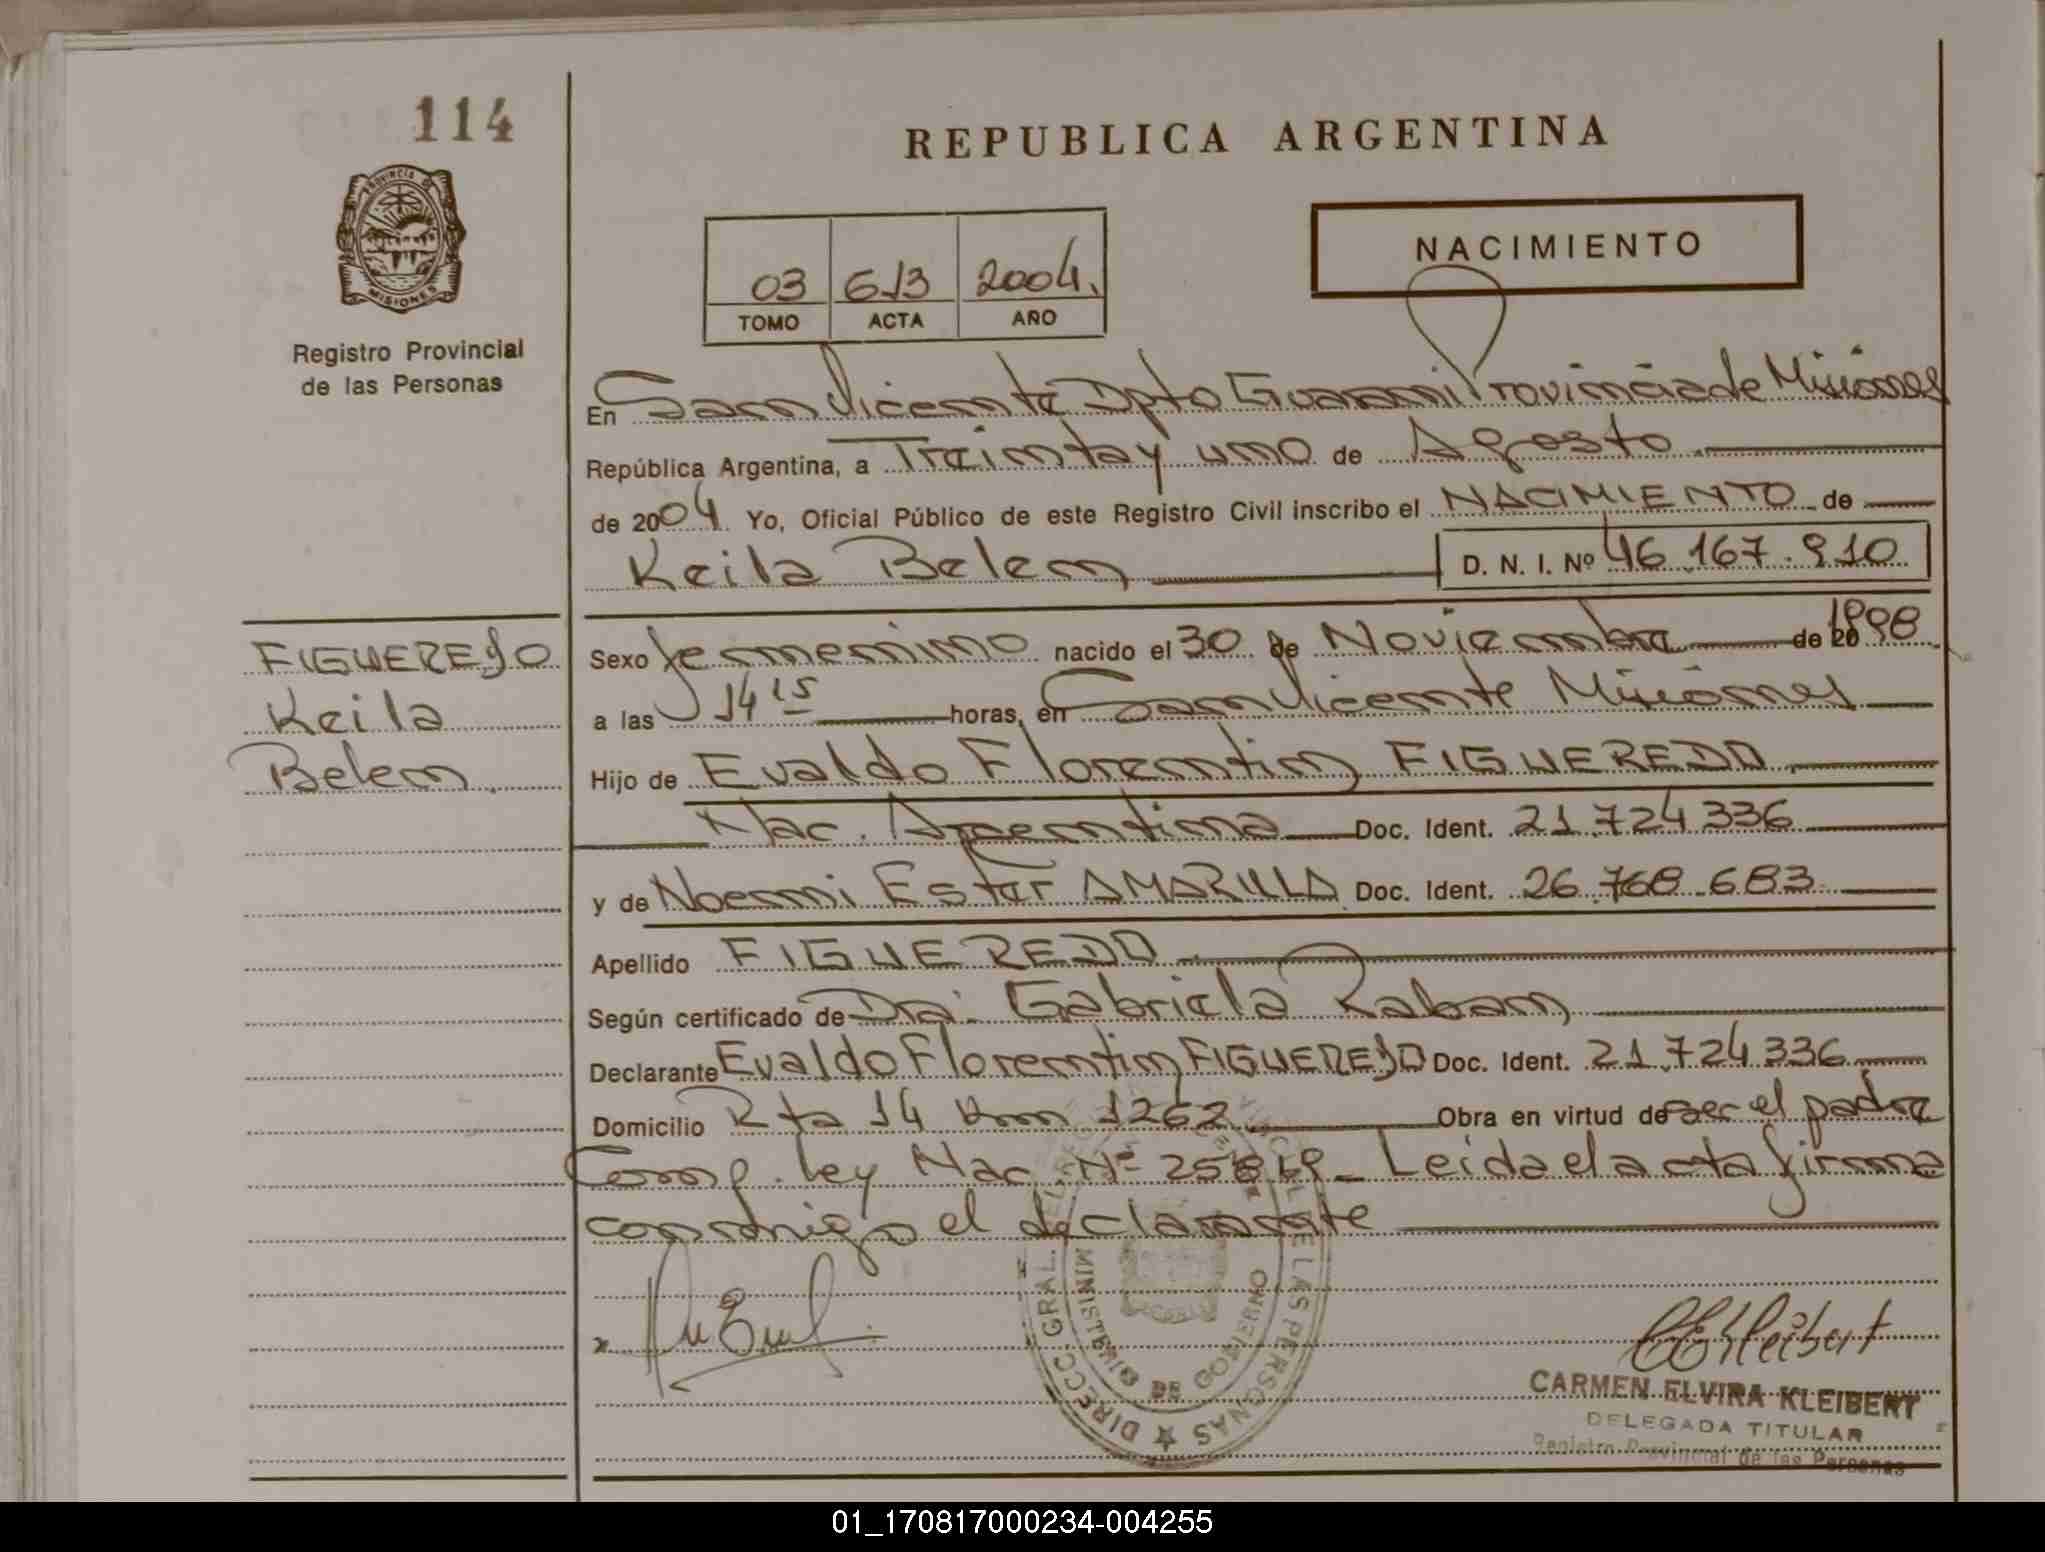 114
REPUBLICA ARGENTINA
PROVINCIA DE
MISIONES
Registro Provincial
de las Personas
NACIMIENTO
03 613 2004.
TOMO ACTA AÑO
En San Vicente Dpto Guarani Provincia de Misiones
República Argentina, a Treinta y uno de Agosto
de 2004 Yo, Oficial Público de este Registro Civil inscribo el NACIMIENTO de
Keila Belen D. N. I. Nº 46.167.910
FIGUEREDO
Keila
Belen
Sexo femenino nacido el 30 de Noviembre de 20 1998
a las 14 15 horas, en San Vicente Misiones
Hijo de Evaldo Florentin FIGUEREDO
Nac. Argentina Doc. Ident. 21.724.336
y de Noemi Ester AMARILLA Doc. Ident. 26.768.683
Apellido FIGUEREDO
Según certificado de Dra. Gabriela Raban
Declarante Evaldo Florentin FIGUEREDO Doc. Ident. 21.724.336
Domicilio Rta 14 Km 1262 Obra en virtud de ser el padre
Conf. ley Nac. Nº 25819 Leida el acta firma
conmigo el declarante
x
DIRECC. GRAL. DE LAS PERSONAS
MINISTERIO DE GOBIERNO
CEKleibert
CARMEN ELVIRA KLEIBERT
DELEGADA TITULAR
Registro Provincial de las Personas
01_170817000234-004255